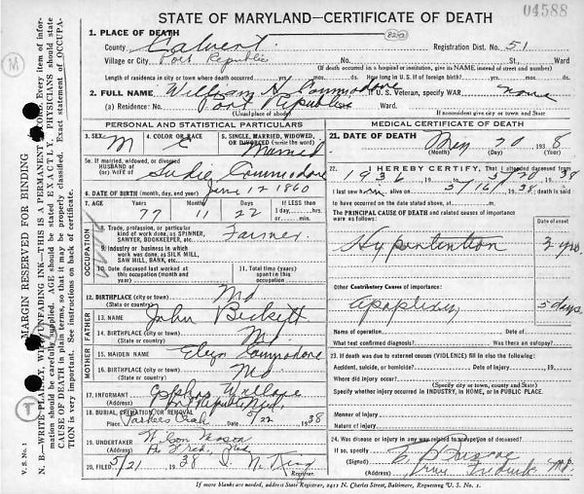 04588
STATE OF MARYLAND—CERTIFICATE OF DEATH
1. PLACE OF DEATH
County Calvert 82a Registration Dist. No. 51
Village or City Port Republic No. St. Ward
(If death occurred in a hospital or institution, give its NAME instead of street and number)
Length of residence in city or town where death occurred yrs. mos. ds. How long in U. S. if of foreign birth? yrs. mos. ds.
2. FULL NAME William H Commodore If U. S. Veteran, specify WAR none
(a) Residence: No. Port Republic St. Ward.
(Usual place of abode) If nonresident give city or town and State
PERSONAL AND STATISTICAL PARTICULARS
3. SEX M 4. COLOR OR RACE C 5. SINGLE, MARRIED, WIDOWED, OR DIVORCED Married
5a. If married, widowed, or divorced
HUSBAND of
(or) WIFE of Sukie Commodore
6. DATE OF BIRTH (month, day, and year) June 12 1860
7. AGE Years Months Days If LESS than
77 11 22 1 day, hrs.
or min.
OCCUPATION
8. Trade, profession, or particular
kind of work done, as SPINNER,
SAWYER, BOOKKEEPER, etc. Farmer
9. Industry or business in which
work was done, as SILK MILL,
SAW MILL, BANK, etc.
10. Date deceased last worked at
this occupation (month and
year)
11. Total time (years)
spent in this
occupation
12. BIRTHPLACE (city or town)
(State or country) Md
FATHER
13. NAME John Beckett
14. BIRTHPLACE (city or town)
(State or country) Md.
MOTHER
15. MAIDEN NAME Commodore
16. BIRTHPLACE (city or town)
(State or country) Md
17. INFORMANT Wallace
(Address) Port Republic, Md.
18. BURIAL, CREMATION OR REMOVAL
Place Date 5/22 1938
19. UNDERTAKER Mason
(Address) Pr Fred, Md
20. FILED 5/21 1938 J. N. King
MEDICAL CERTIFICATE OF DEATH
21. DATE OF DEATH
May 20 1938
(Month) (Day) (Year)
22. I HEREBY CERTIFY, That I attended deceased from
1936 to 5/20 1938
I last saw him alive on 5/16/1938; death is said
to have occurred on the date stated above, at m.
The PRINCIPAL CAUSE OF DEATH and related causes of importance
were as follows: Date of onset
Hypertention 3 yrs.
Other Contributory Causes of importance:
Apoplexy 5 days
Name of operation Date of
What test confirmed diagnosis? Was there an autopsy?
23. If death was due to external causes (VIOLENCE) fill in also the following:
Accident, suicide, or homicide? Date of injury 19
Where did injury occur?
(Specify city or town, county and State)
Specify whether injury occurred in INDUSTRY, in HOME, or in PUBLIC PLACE.
Manner of injury
Nature of injury
24. Was disease or injury in any way related to occupation of deceased?
If so, specify
(Signed) M. D.
(Address) Prince Frederick Md.
If more blanks are needed, address State Registrar, 2411 N. Charles Street, Baltimore, Requesting U. S. No. 1.
MARGIN RESERVED FOR BINDING
N. B.—WRITE PLAINLY, WITH UNFADING INK—THIS IS A PERMANENT RECORD. Every item of information should be carefully supplied. AGE should be stated EXACTLY. PHYSICIANS should state CAUSE OF DEATH in plain terms, so that it may be properly classified. Exact statement of OCCUPATION is very important. See instructions on back of certificate.
V. S. No. 1
M
T